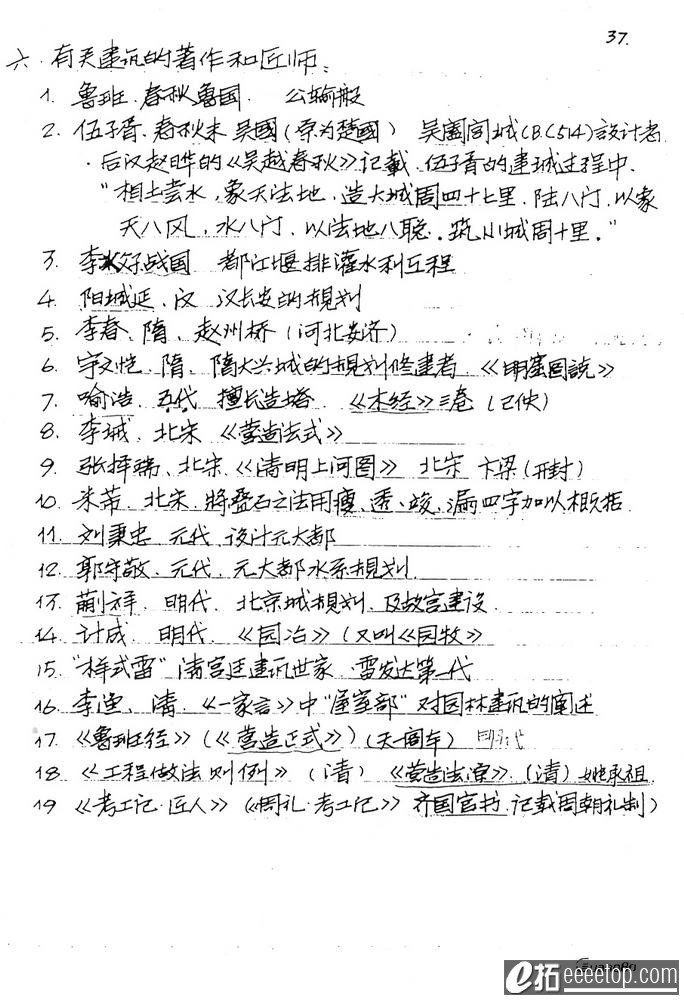 37.
六. 有关建筑的著作和匠师:
1. 鲁班. 春秋鲁国. 公输般
2. 伍子胥. 春秋末 吴國(原为楚國) 吴阖闾城(B.C514)設计者.
· 后汉赵晔的《吴越春秋》记載. 伍子胥的建城过程中.
"相土尝水,象天法地,造大城周四十七里. 陆八门. 以象
天八风,水八门. 以法地八聪. 筑小城周十里."
3. 李冰 战国 都江堰排灌水利工程
4. 阳城延. 汉 汉长安的規划
5. 李春、隋、赵州桥(河北安济)
6. 宇文恺. 隋. 隋大兴城的規划修建者. 《明堂图説》
7. 喻浩. 五代 擅长造塔. 《木经》三卷 (已佚)
8. 李诫. 北宋 《营造法式》
9. 张择瑞、北宋.《清明上河图》 北宋 卞梁(开封)
10. 米芾、北宋. 將叠石之法用瘦、透、皱、漏四字加以概括.
11. 刘秉忠 元代 设计元大都
12. 郭守敬. 元代. 元大都水系規划.
13. 蒯祥. 明代. 北京城規划. 及故宫建设.
14. 计成. 明代. 《园冶》(又叫《园牧》
15. "样式雷" 清宫廷建筑世家 雷发达第一代
16. 李渔、清. 《一家言》中"居室部" 对园林建筑的阐述
17. 《鲁班经》(《营造正式》)(天一阁本) 明代
18. 《工程做法则例》(清) 《营造法源》. (清) 姚承祖.
19 《考工记·匠人》(《周礼·考工记》 齐国官书. 记载周朝礼制)
e拓 eeeetop.com